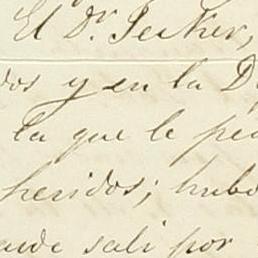 El Dr. Jecker,
dos y en la D
la que le pe
heridos; hubo
salí por